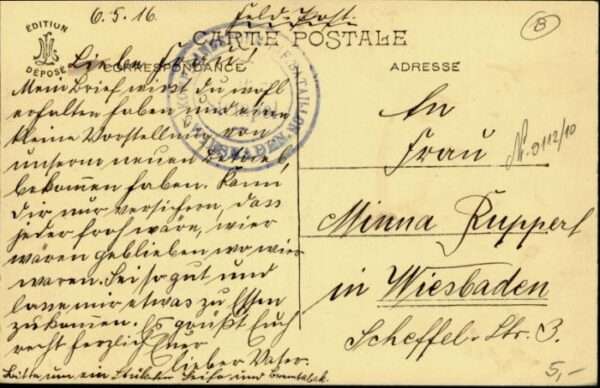 6.5.16.
Feld-Post.
EDITION
DÉPOSÉ
CARTE POSTALE
CORRESPONDANCE
ADRESSE
Liebe
Mein Brief wirst du wohl
erhalten haben und eine
kleine Vorstellung von
unserm neuen
bekommen haben. Kann
dir nur versichern, dass
jeder froh wäre, wier
wären geblieben wo wier
waren. Sei so gut und
lasse mir etwas zu Essen
zukommen. Es grüßt Euch
recht herzlich Euer
lieber Vater.
Bitte um ein Seife und
An
Frau
Minna Ruppert
in Wiesbaden
Scheffel-Str. 3.
B
5,-